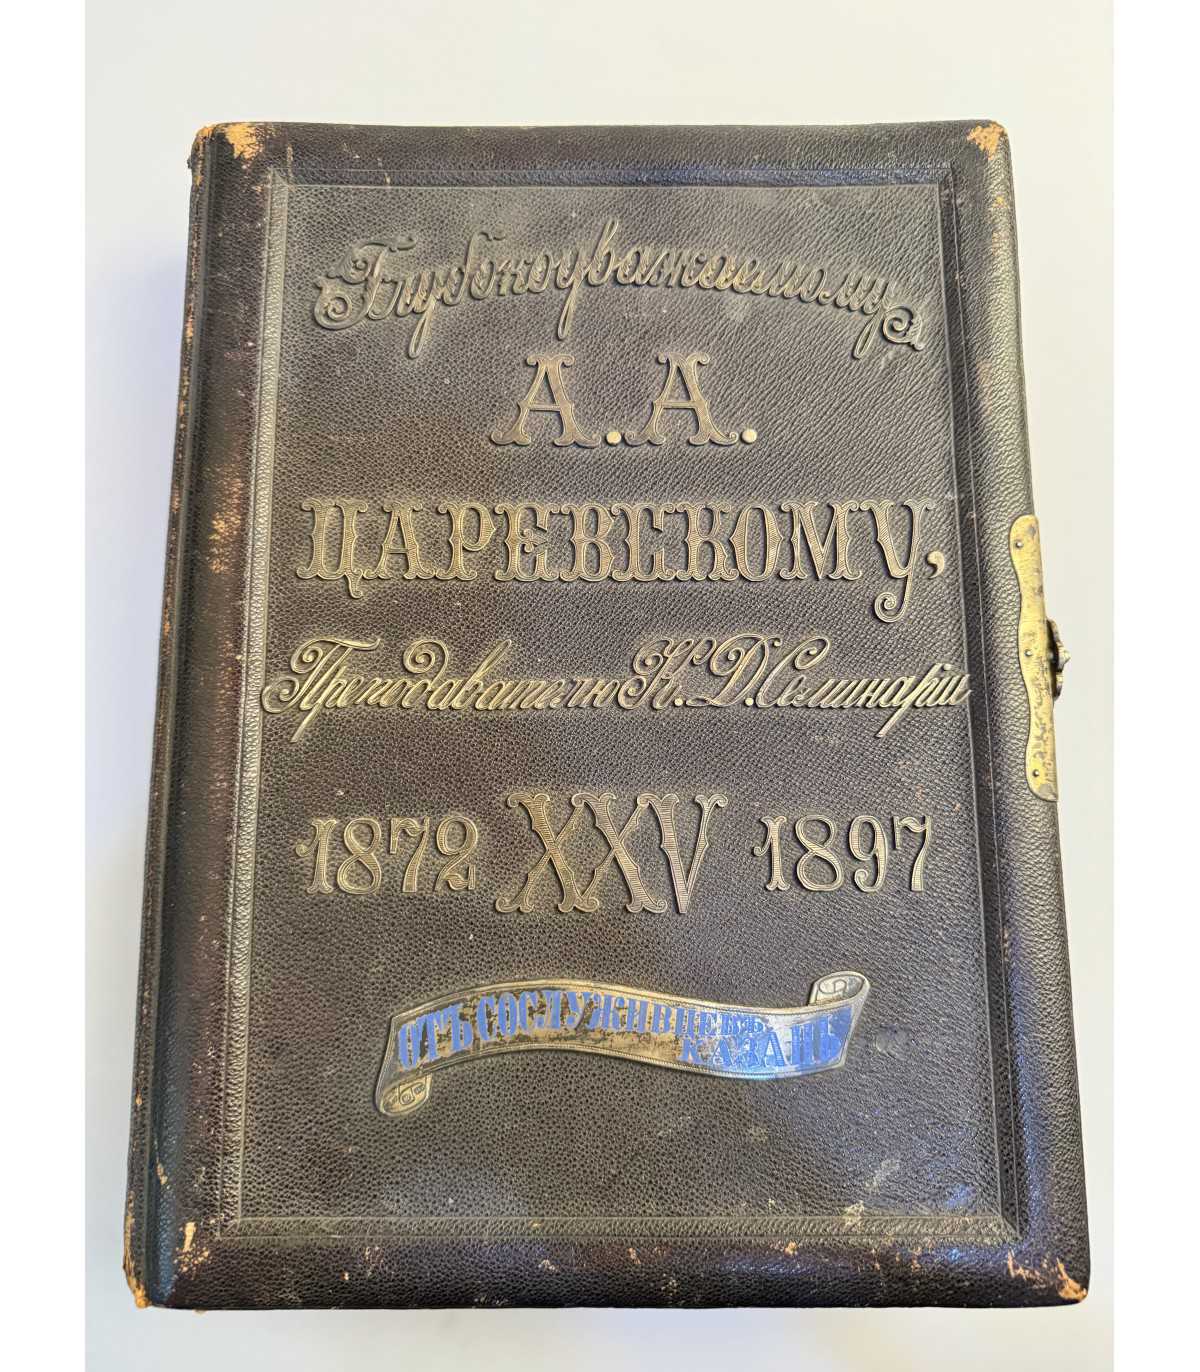 Глубокоуважаемому
А. А.
ЦАРЕВСКОМУ,
Преподавателю К. Д. Семинарiи
1872 XXV 1897
ОТЪ СОСЛУЖИВЦЕВЪ
КАЗАНЬ